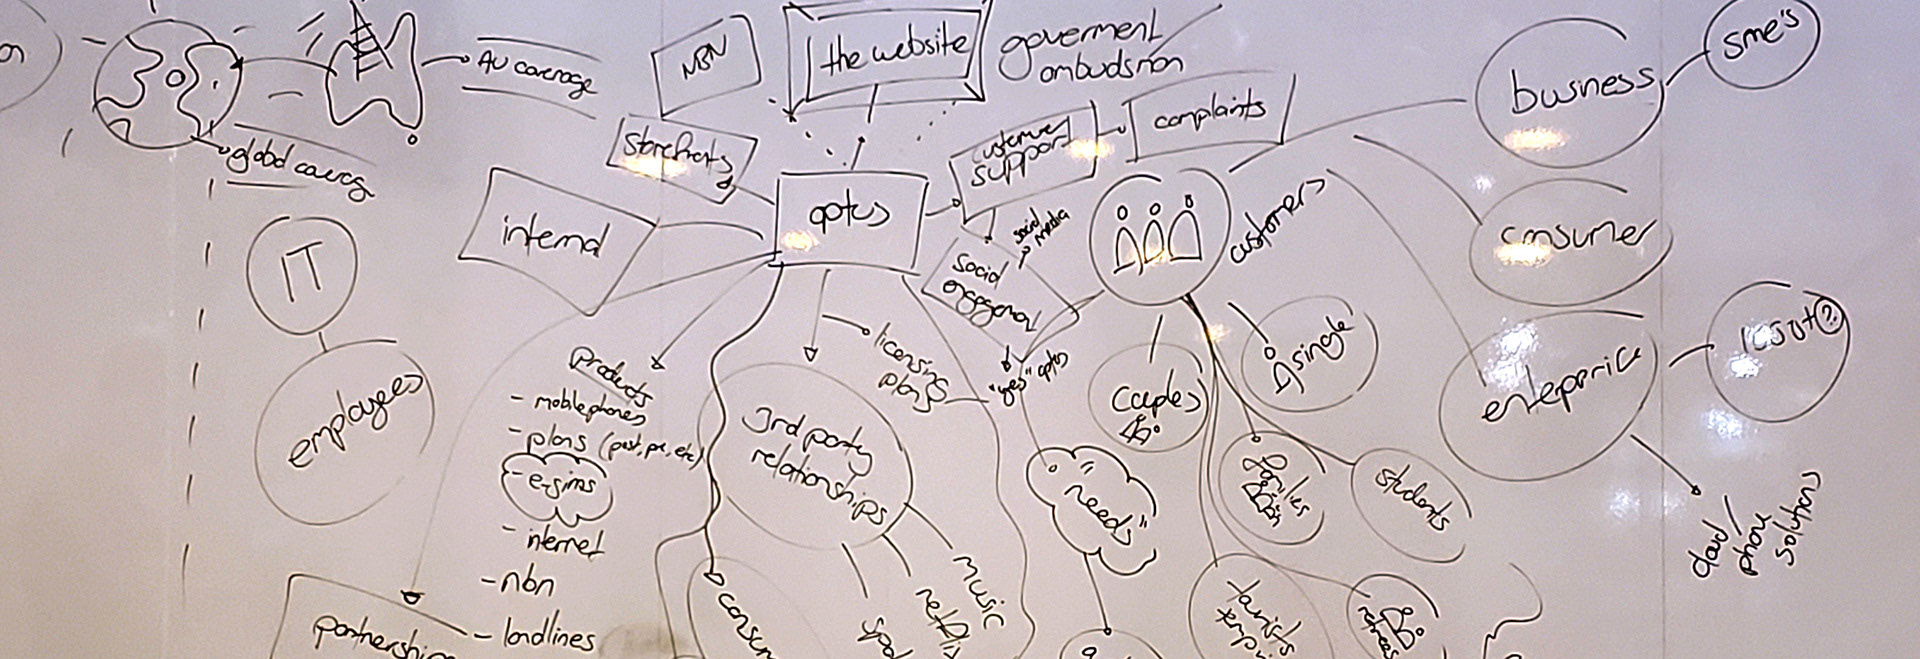 on
AU coverage
global coverag
NBN
the website
goverment
ombudsman
storefronts
customer
support
complaints
business
sme's
internal
optus
social
engagemat
social
media
customers
consumer
IT
employees
products
- mobile phones
- plans (post, pre, etc)
- e-sims
- internet
- nbn
- landlines
licensing
plans
"yes" optus
3rd party
relationships
music
netflix
"needs"
couples
single
families
students
enteprice
cloud /
phone
solutions
partnership
consum
tourists
retirees